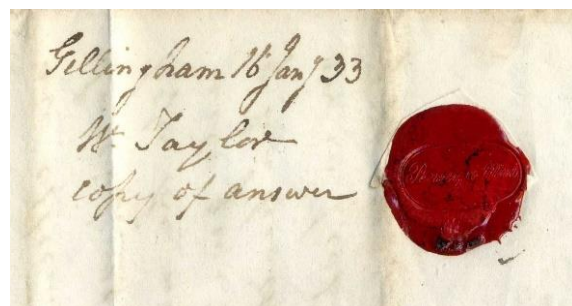 Gillingham 16 Jany 33
W. Taylor
copy of answer